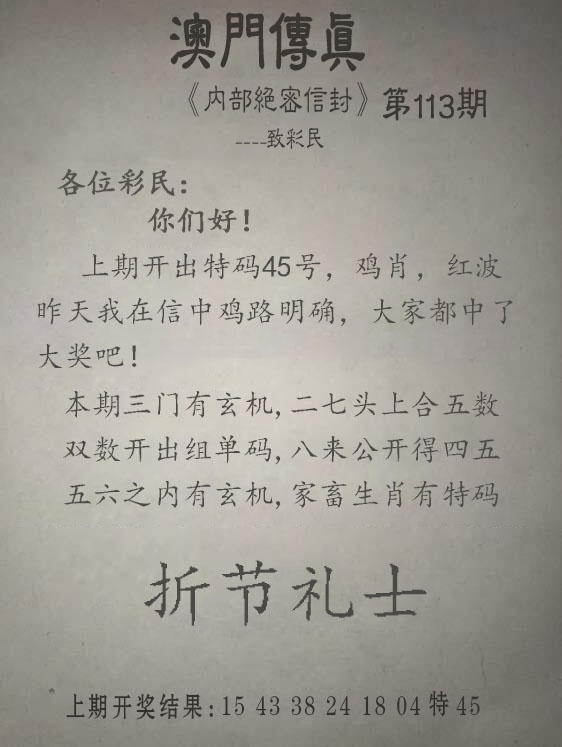 澳門傳真
《内部絕密信封》第113期
----致彩民
各位彩民：
你们好！
上期开出特码45号，鸡肖，红波
昨天我在信中鸡路明确，大家都中了
大奖吧！
本期三门有玄机,二七头上合五数
双数开出组单码,八来公开得四五
五六之内有玄机,家畜生肖有特码
折节礼士
上期开奖结果:15 43 38 24 18 04特45